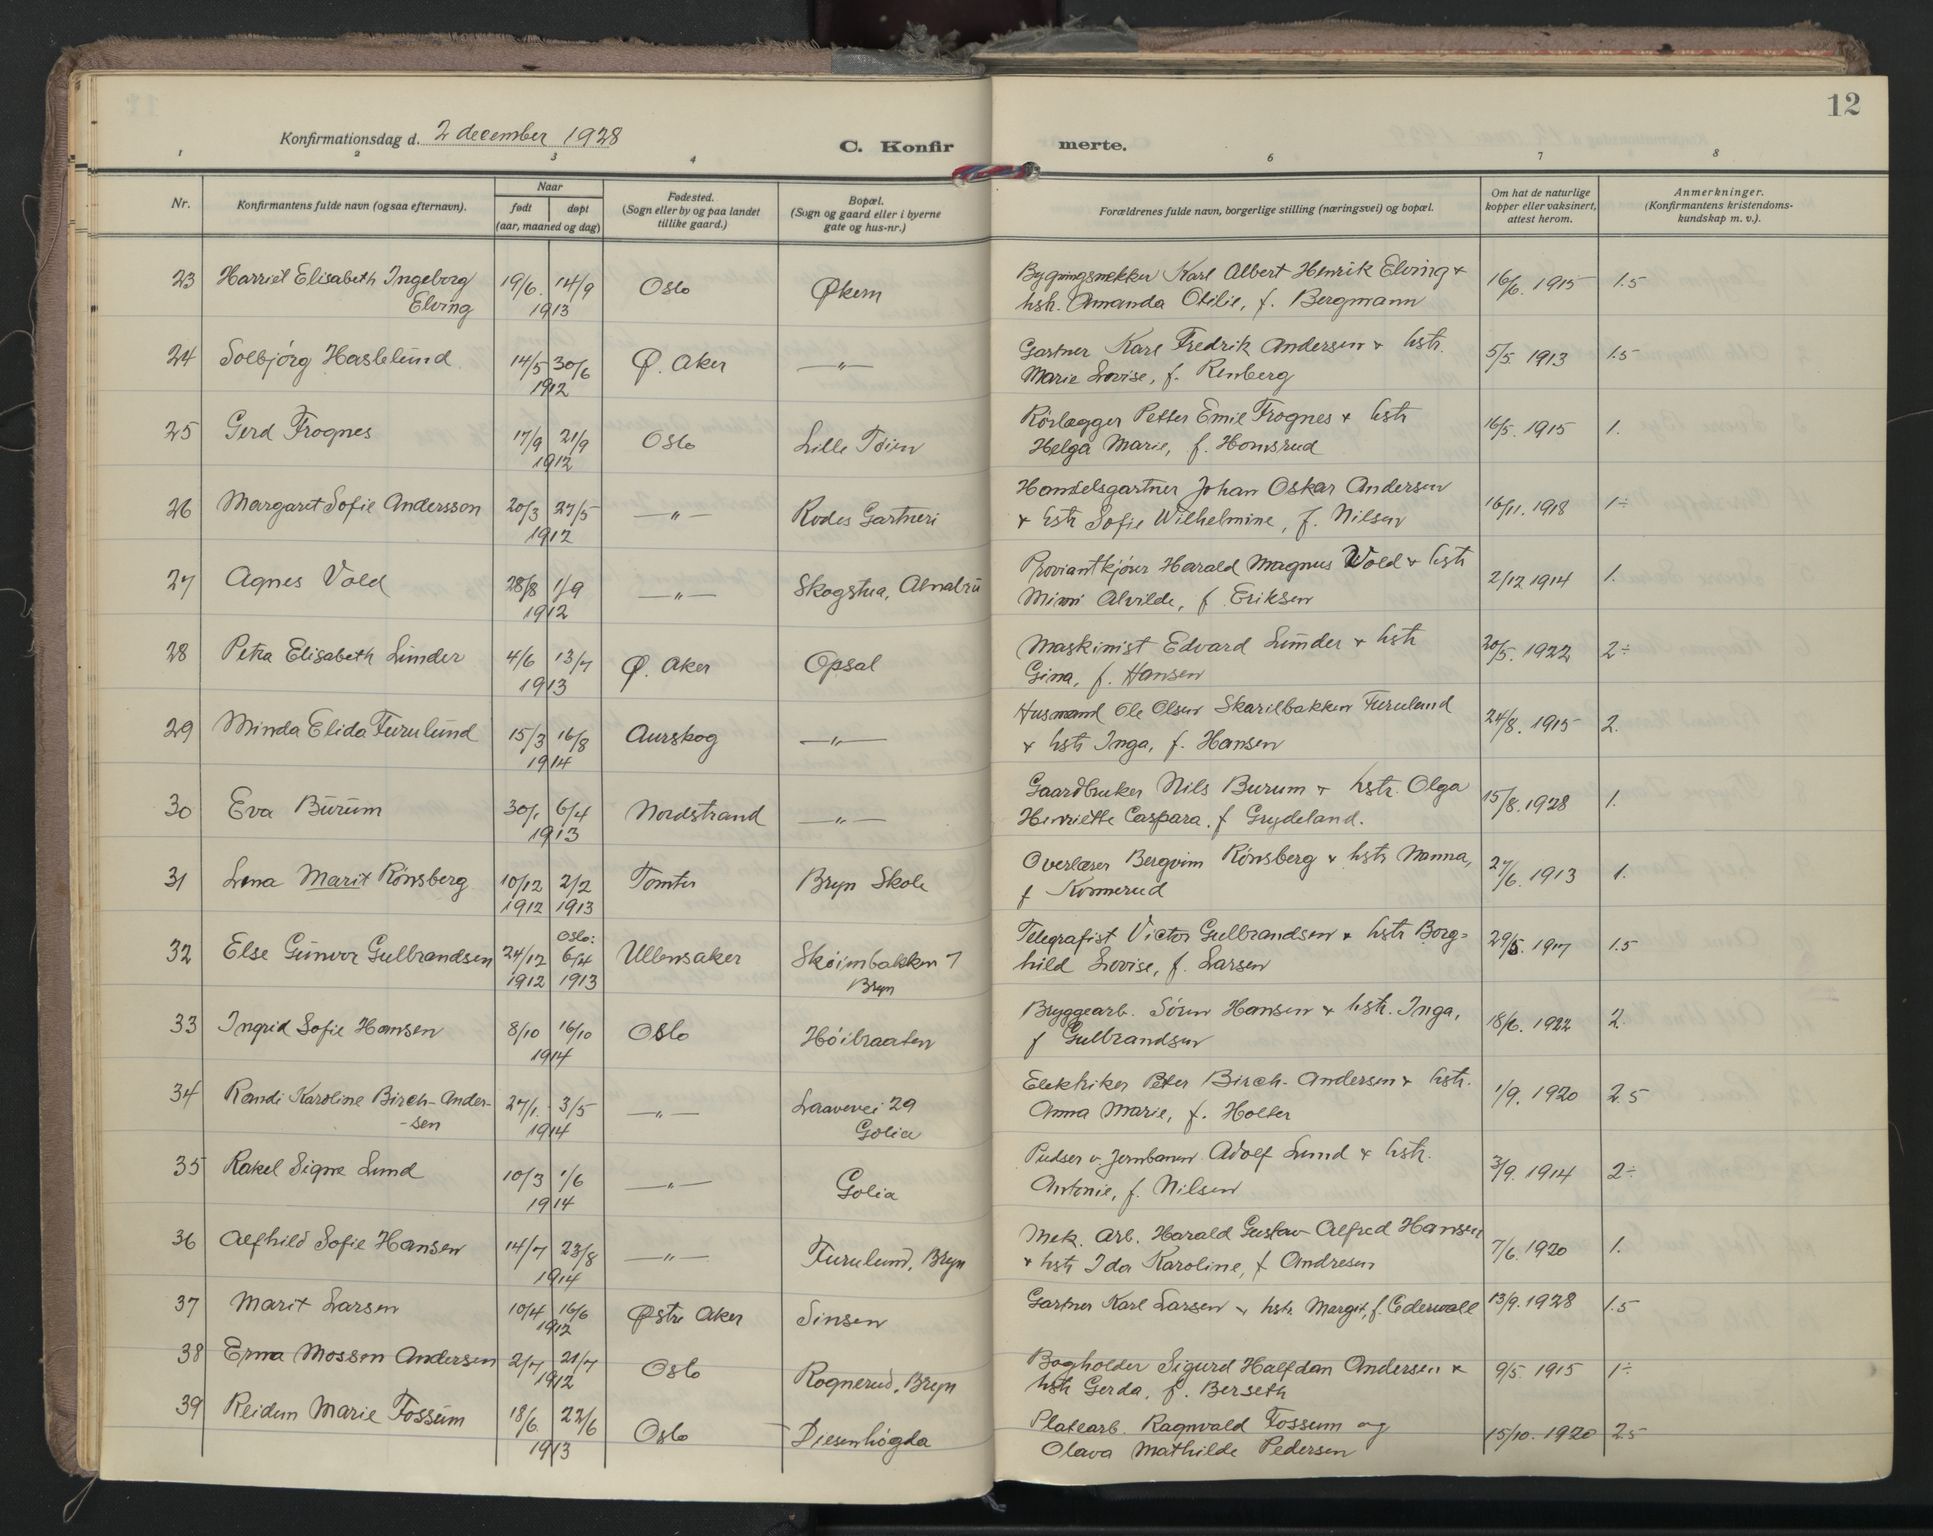 12
Konfirmationsdag d. 2 december 1928
C. Konfirmerte.
1 2 3 4 5 6 7 8
Nr.
Konfirmantens fulde navn (ogsaa efternavn).
Naar
født døpt
(aar, maaned og dag)
Fødested.
(Sogn eller by og paa landet
tillike gaard.)
Bopæl.
(Sogn og gaard eller i byerne
gate og hus-nr.)
Forældrenes fulde navn, borgerlige stilling (næringsvei) og bopæl.
Om hat de naturlige
kopper eller vaksinert,
attest herom.
Anmerkninger.
(Konfirmantens kristendoms-
kundskap m. v.).
23 Harriet Elisabeth Ingeborg 19/6. 14/9 Oslo Økern Bygningsnekker Karl Albert Henrik Elving + 16/6. 1915 1.5
Elving 1913 hsh. Amanda Otilie, f. Bergmann
24 Solbjörg Haslelund 14/5 30/6 Ø. Aker —"— Gartner Karl Fredrik Andersen + hstr. 5/5 1913 1.5
1912 Marie Lovise, f. Renberg
25 Gerd Frognes 17/9 21/9 Oslo Lille Töien Rörlægger Petter Emil Frognes + hstr 16/5. 1915 1.
1912 Helga Marie, f. Homsrud
26 Margaret Sofie Andersson 20/3 27/5 —"— Rodes Gartneri Handelsgartner Johan Oskar Andersen 16/11. 1918 1÷
1912 + hstr Sofie Wilhelmine, f. Nilsen
27 Agnes Vold 28/8 1/9 —"— Skogstua, Alnabru Proviantkjörer Harald Magnus Wold + hstr 2/12 1914 1.
1912 Minni Alvilde, f. Eriksen
28 Petra Elisabeth Lunder 4/6 13/7 Ø. Aker Opsal Maskinist Edvard Lunder + hstr 20/5. 1922 2÷
1913 Gina, f. Hansen
29 Minda Elida Furulund 15/3 16/8 Aurskog —"— Husmand Ole Olsen Skarilbakken Furuland 24/8. 1915 2.
1914 + hstr Inga, f. Hansen
30 Eva Burum 30/1 6/4 Nordstrand —"— Gaardbruker Nils Burum + hstr. Olga 15/8. 1928 1.
1913 Henriette Caspara, f Grydeland.
31 Lena Marit Rönsberg 10/12 2/2 Tomter Bryn Skole Overlærer Bergvim Rönsberg + hstr Nanna, 27/6. 1913 1.
1912 1913 f Konnerud
32 Else Gunvor Gulbrandsen 24/12 Oslo: 6/4 Ullensaker Skøimbakken 7 Telegrafist Victor Gulbrandsen + hstr Borg= 29/5. 1917 1.5
1912 1913 Bryn hild Lovise, f. Larsen
33 Ingrid Sofie Hansen 8/10 16/10 Oslo Höibraaten Bryggearb. Sören Hansen + hstr. Inga, 18/6. 1922 2.
1914 f Gulbrandsen
34 Randi Karoline Birch-Ander- 27/1. 3/5 —"— Laravei 29 Elektriker Peter Birch-Andersen + hstr. 1/9. 1920 2.5
-sen 1914 Golia Anna Marie, f. Holter
35 Rakel Signe Lund 10/3 1/6 —"— Golia Pudser v. Jernbanen Adolf Lund + hstr. 3/9. 1914 2÷
1914 Antonie, f. Nilsen
36 Alfhild Sofie Hansen 14/7 23/8 —"— Furulund, Bryn Mek. Arb. Harald Gustav Alfred Hansen 7/6. 1920 1.
1914 + hstr Ida Karoline, f Andresen
37 Marit Larsen 10/4 16/6 Østre Aker Sinsen Gartner Karl Larsen + hstr. Margit, f. Cederwall 13/9. 1928 1.5
1912
38 Erna Mossen Andersen 2/7 21/7 Oslo Rognerud, Bryn Bogholder Sigurd Halfdan Andersen + 9/5. 1915 1÷
1912 hstr Gerda, f. Berseth
39 Reidun Marie Fossum 18/6. 22/6 Oslo Diesenhögda Platearb. Ragnvald Fossum og 15/10. 1920 2.5
1913 Olava Mathilde Pedersen